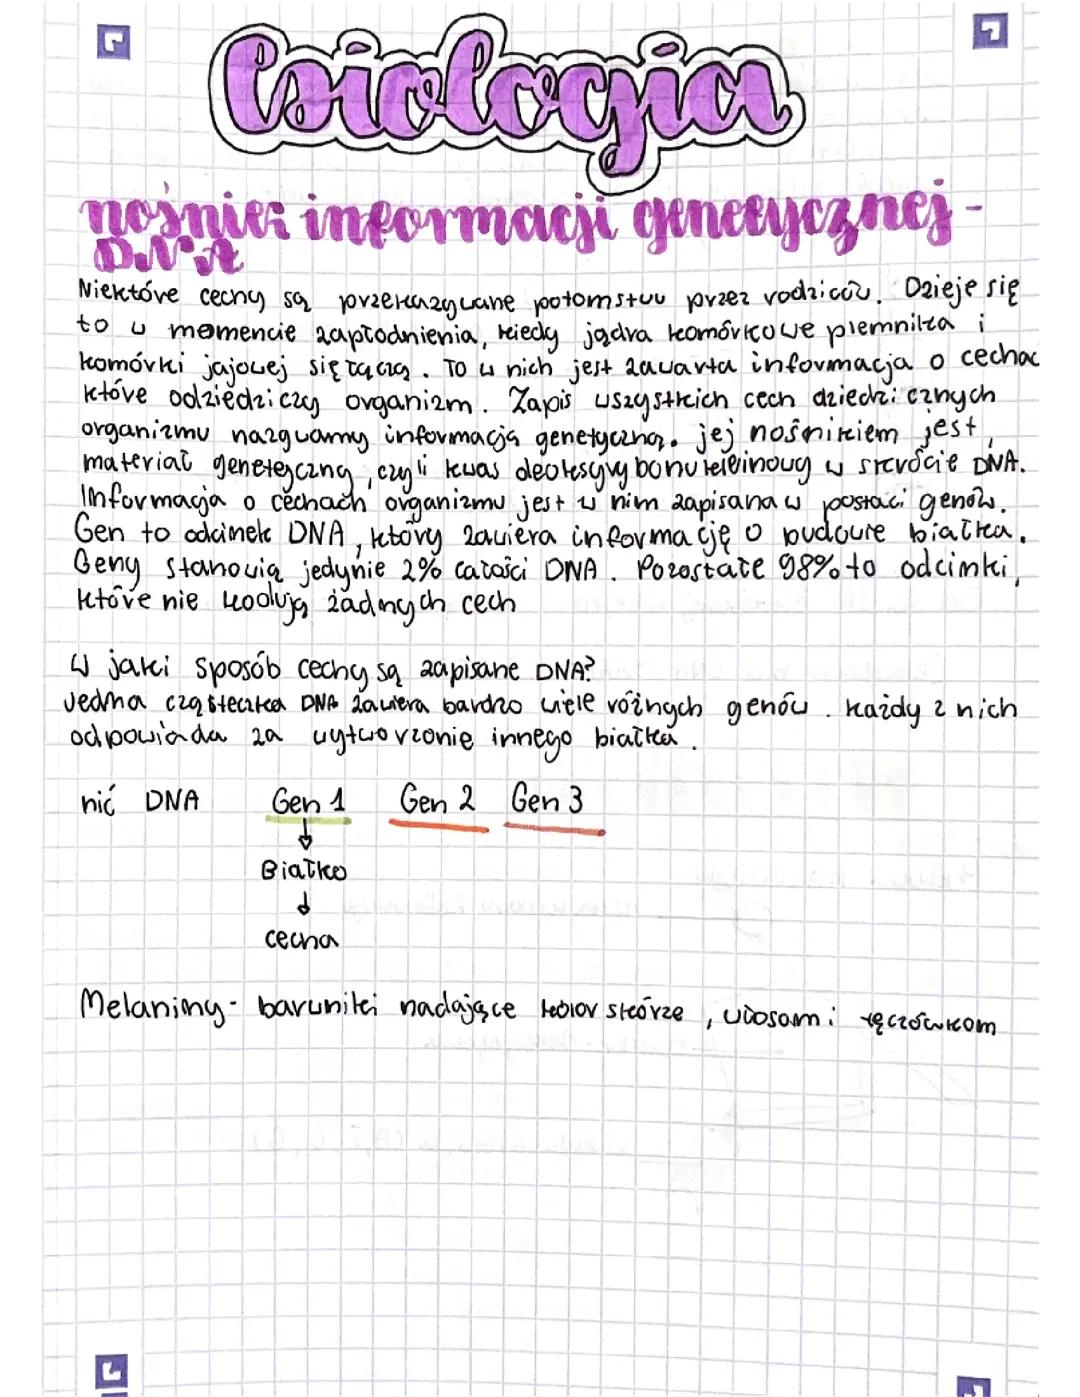 Biologia
nośnik informacji genetycznej -
DNA
Niektóre cechy są przekazywane potomstwu przez rodziców. Dzieje się
to w momencie zapłodnienia, kiedy jądra komórkowe plemnika i
komórki jajowej się łączą. To w nich jest zawarta informacja o cechac
które odziedziczy organizm. Zapis wszystkich cech dziedzicznych
organizmu nazywamy informacją genetyczną. jej nośnikiem jest
materiał genetyczny, czyli kwas deoksyrybonukleinowy w skrócie DNA.
Informacja o cechach organizmu jest w nim zapisana w postaci genów.
Gen to odcinek DNA, który zawiera informację o budowie białka.
Geny stanowią jedynie 2% całości DNA. Pozostałe 98% to odcinki,
które nie kodują żadnych cech
W jaki sposób cechy są zapisane DNA?
Jedna cząsteczka DNA zawiera bardzo wiele różnych genów. każdy z nich
odpowiada za wytworzenie innego białka.
nić DNA Gen 1 Gen 2 Gen 3
Białko
cecha
Melaniny - barwniki nadające kolor skórze, włosom i tęczówkom